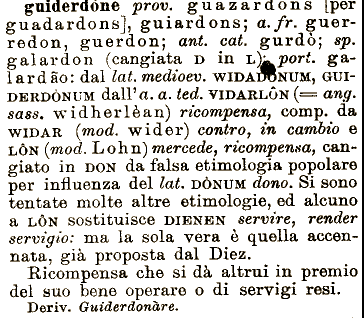 guiderdóne prov. guazardons [per
guadardons], guiardons; a. fr. guer-
redon, guerdon; ant. cat. gurdò; sp.
galardon (cangiata D in L); port. ga-
lardão: dal lat. medioev. WIDADÒNUM, GUI-
DERDÒNUM dall'a. a. ted. VIDARLÔN (= ang.
sass. widherlèan) ricompensa, comp. da
WIDAR (mod. wider) contro, in cambio e
LÔN (mod. Lohn) mercede, ricompensa, can-
giato in DON da falsa etimologia popolare
per influenza del lat. DÒNUM dono. Si sono
tentate molte altre etimologie, ed alcuno
a LÔN sostituisce DIENEN servire, render
servigio: ma la sola vera è quella accen-
nata, già proposta dal Diez.
Ricompensa che si dà altrui in premio
del suo bene operare o di servigi resi.
Deriv. Guiderdonàre.